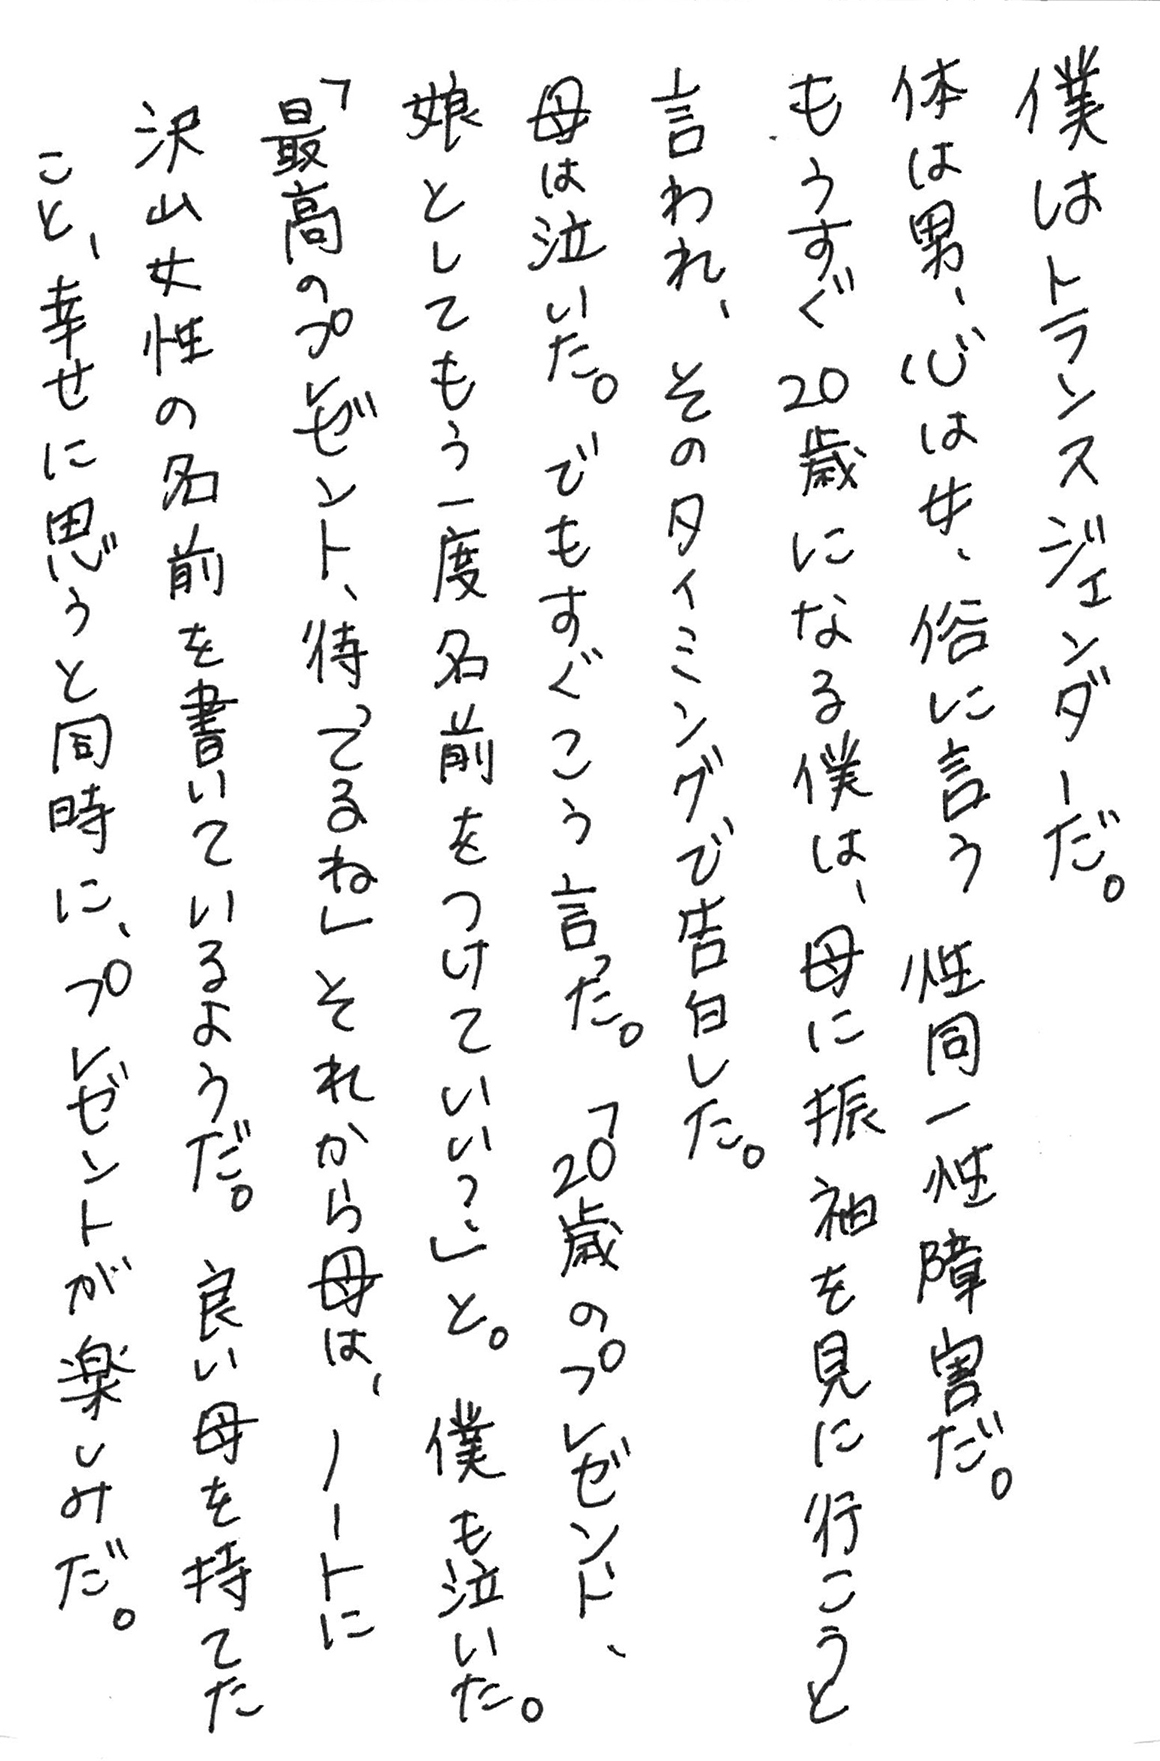 僕はトランスジェンダーだ。
体は男、心は女、俗に言う 性同一性障害だ。
もうすぐ20歳になる僕は、母に振袖を見に行こうと
言われ、そのタイミングで告白した。
母は泣いた。でもすぐこう言った。「20歳のプレゼンド、
娘としてもう一度名前をつけていい?」と。僕も泣いた。
「最高のプレゼント、待ってるね」それから母は、ノートに
沢山女性の名前を書いているようだ。良い母を持てた
こと、幸せに思うと同時に、プレゼントが楽しみだ。